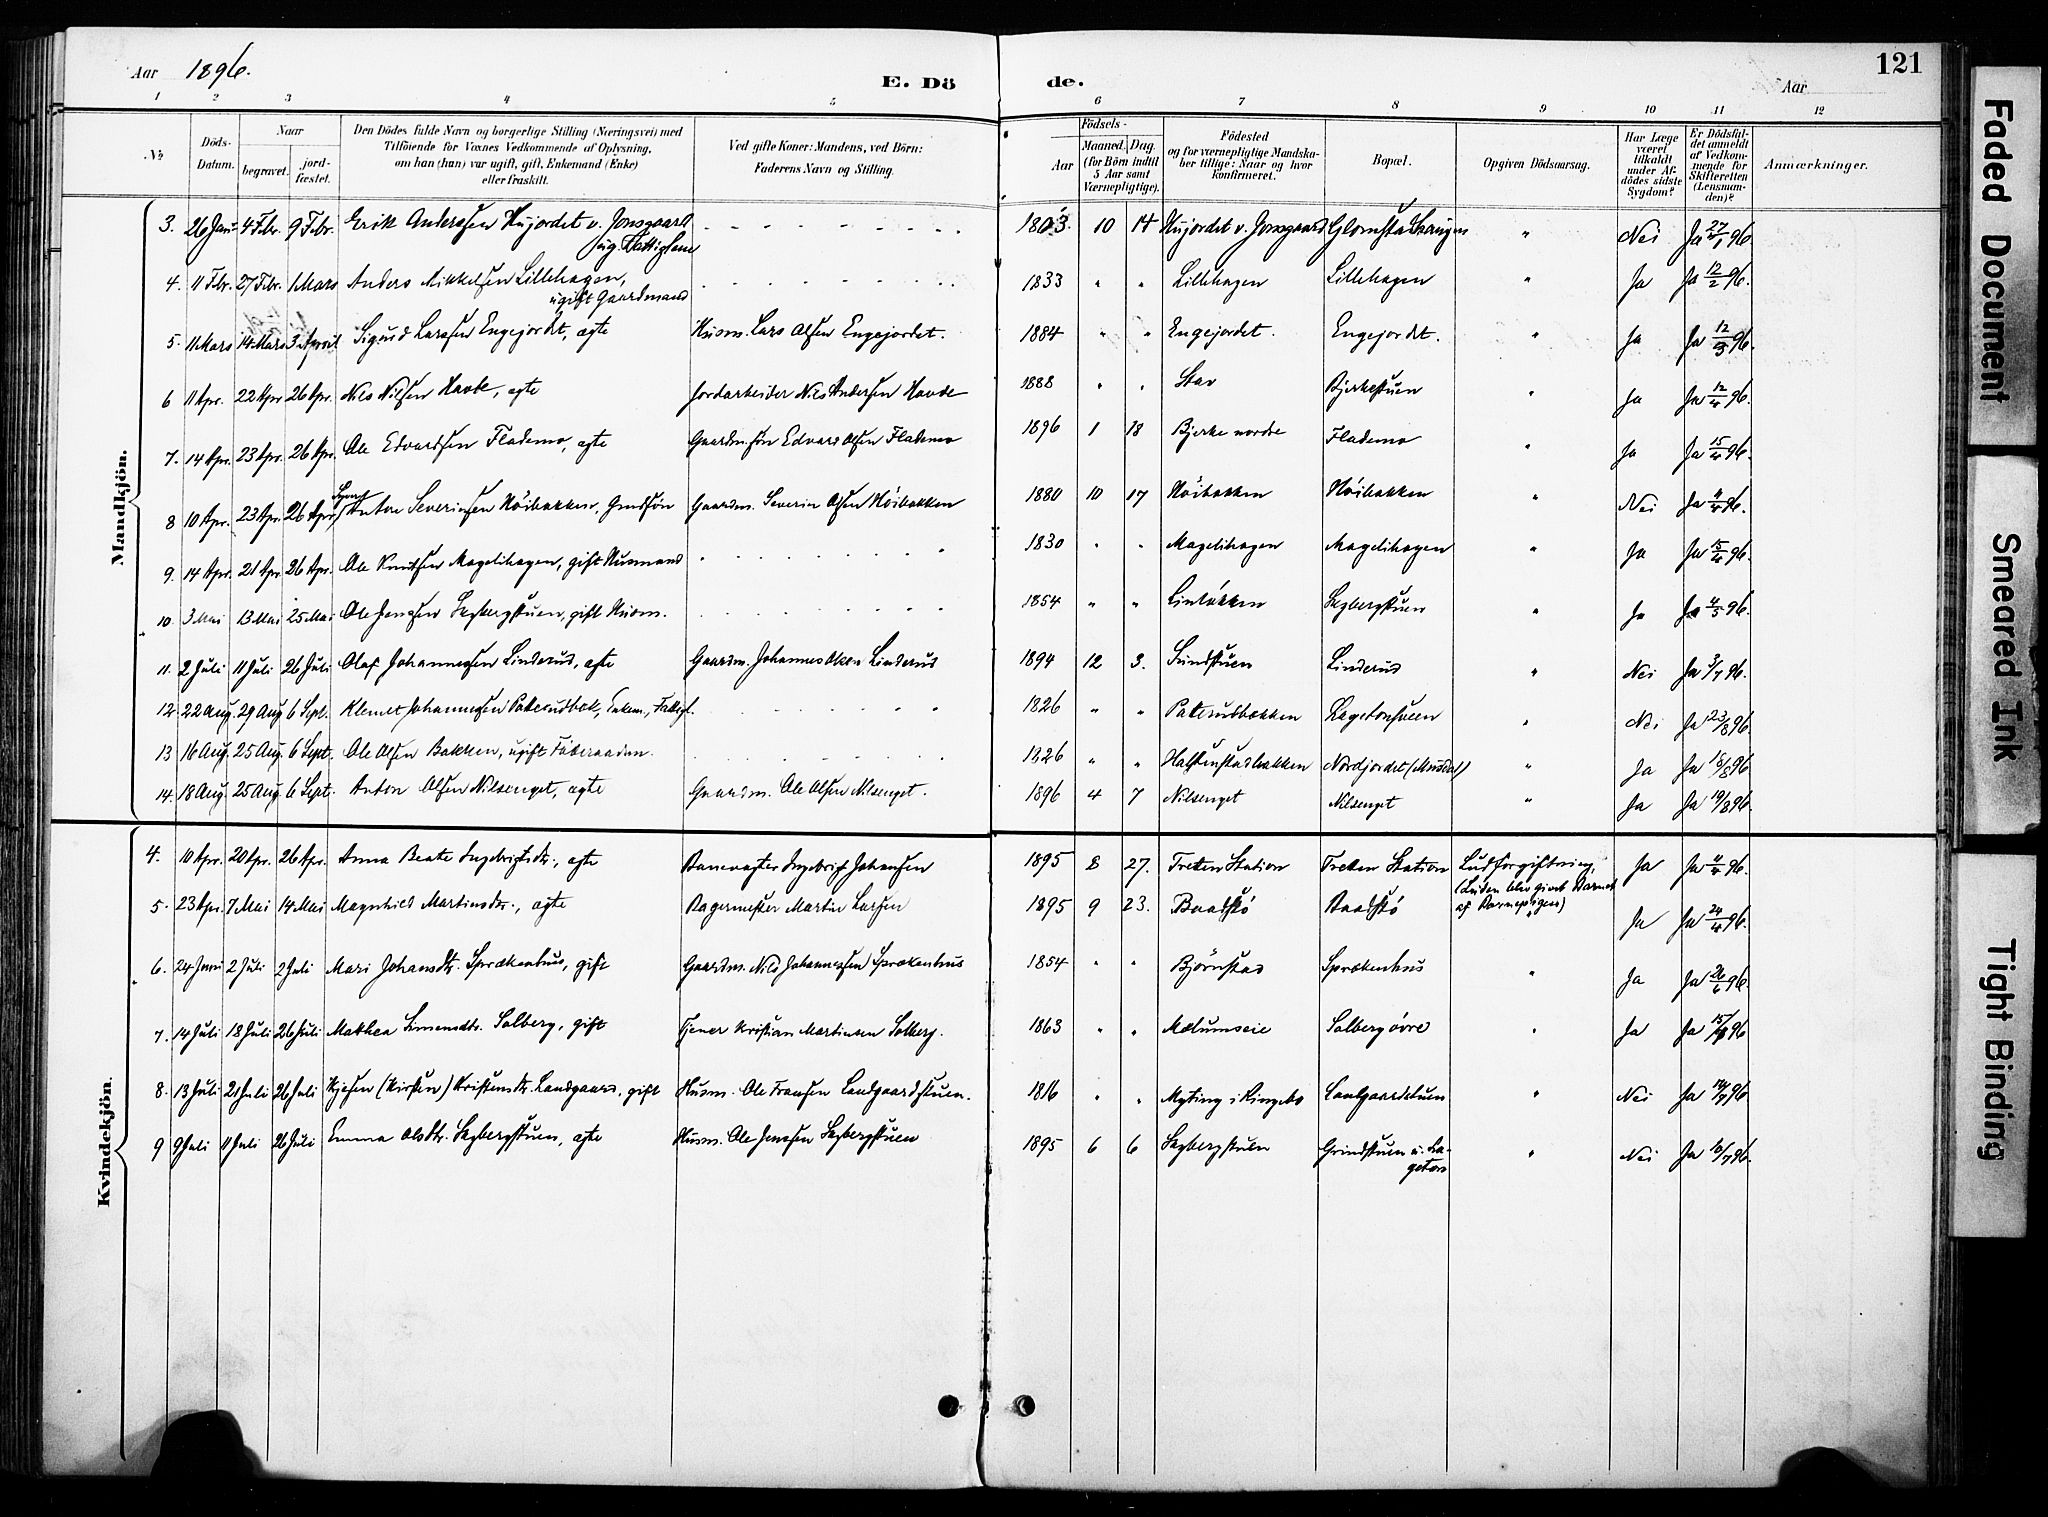 Aar 1896. E. Döde. Aar 121
1 2 3 4 5 6 7 8 9 10 11 12
No.
Döds-Datum.
Naar
begravet.
jord-fæstet.
Den Dödes fulde Navn og borgerlige Stilling (Næringsvei) med
Tilföiende for Voxnes Vedkommende af Oplysning,
om han (hun) var ugift, gift, Enkemand (Enke)
eller fraskilt.
Ved gifte Koner: Mandens, ved Börn:
Faderens Navn og Stilling.
Födsels-
Aar
Maaned. Dag.
(for Börn indtil
5 Aar samt
Værnepligtige).
Födested
og for værnepligtige Mandska-
ber tillige: Naar og hvor
konfirmeret.
Bopæl.
Opgiven Dödsaarsag.
Har Læge
været
tilkaldt
under Af-
dödes sidste
Sygdom?
Er Dödsfal-
det anmeldt
af Vedkom-
mende for
Skifteretten
(Lensman-
den)?
Anmærkninger.
Mandkjön.
3. 26 Jan. 4 Febr. 9 Febr. Erik Anderssen Nyjordet v. Jonsgaard 1803 10 14 Nyjordet v. Jonsgaard " Nei Ja 27/1 96.
4. 11 Febr. 27 Febr. 1 Mars Anders Mikkelsen Lillehagen, 1833 " " Lillehagen Lillehagen " Ja Ja 12/2 96.
ugift Gaardmand
5. 11 Mars 14 Mars 3 April Sigurd Larssen Engejordet, ægte Husm. Lars Olsen Engejordet. 1884 " " Engejordet. Engejordet. " Ja Ja 12/3 96.
6 11 Apr. 22 Apr 26 Apr. Nils Nilsen Havde, ægte Jordarbeider Nils Andersen Havde 1888 " " Stav Bjerkestuen " Ja Ja 12/4 96.
7. 14 Apr. 23 Apr. 26 Apr. Ole Edvardsen Flademo, ægte Gaardm.sön Edvard Olsen Flademo 1896 1 18 Bjerke nordre Flademo " Ja Ja 15/4 96.
8 10 Apr. 23 Apr. 26 Apr. Anton Severinsen Höibakken, Gaardm. Severin Olsen Höibakken 1880 10 17 Höibakken Höibakken " Nei Ja 11/4 96.
9. 14 Apr. 21 Apr. 26 Apr. Ole Knudsen Magelihagen, gift Husmand 1830 " " Magelihagen Magelihagen " Ja Ja 15/4 96.
10. 3 Mai 13 Mai 25 Mai Ole Jensen Segbergstuen, gift Husm. 1854 " " Linlökken Segbergstuen " Ja Ja 4/5 96.
11. 2 Juli 11 Juli 26 Juli Olaf Johannessen Linderud, ægte Gaardm. Johannes Olsen Linderud 1894 12 3. Sundstuen Linderud " Nei Ja 3/7 96.
12. 22 Aug. 29 Aug 6 Sept. Klemet Johannessen Paterudbæk, Enkem., Fattigl. 1826 " " Paterudbækken " Nei Ja 23/8 96
13 16 Aug. 25 Aug. 6 Sept. Ole Olsen Bakken, ugift Föderaadm. 1826 " " Halstenstadbakken Nordjordet (Musdal) " Ja Ja 18/8 96
14. 18 Aug. 25 Aug. 6 Sept. Anton Olsen Nilsenget, ægte Gaardm. Ole Olsen Nilsenget. 1896 4 7 Nilsenget Nilsenget " Ja Ja 19/8 96.
Kvindekjön.
4. 10 Apr. 20 Apr. 26 Apr. Anna Beate Ingebrigtsdtr., ægte Banevogter Ingebrigt Johansen 1895 8 27. Tretten Station Tretten Station Ludforgiftning, Ja Ja 11/4 96.
(Luden blev givet Barnet
af Barnepigen)
5. 23 Apr. 7 Mai 14 Mai Magnhild Martinsdtr., ægte Bagermester Martin Larsen 1895 9 23. Baadstö Baadstö " Ja Ja 24/4 96.
6. 24 Juni 2 Juli 2 Juli Mari Johansdtr. Sprækenhus, gift Gaardm. Nils Johannessen Sprækenhus 1854 " " Björnstad Sprækenhus " Ja Ja 26/6 96.
7. 14 Juli 18 Juli 26 Juli Mathea Simensdtr. Solberg, gift Tjener Kristian Martinsen Solberg. 1863 " " Mælumseie Solberg övre " Ja Ja 15/7 96
8. 13 Juli 21 Juli 26 Juli (Kirsten) Kristensdtr. Landgaard, gift Husm. Ole Fransen Landgaardstuen. 1816 " " Myting i Ringebo Landgaardstuen " Nei Ja 14/7 96
9 9 Juli 11 Juli 26 Juli Emma Olsdtr. Segbergstuen, ægte Husm. Ole Jensen Segbergstuen 1895 6 6 Segbergstuen Grindstuen u. La- " Nei Ja 10/7 96.
getons
Faded Document
Smeared Ink
Tight Binding